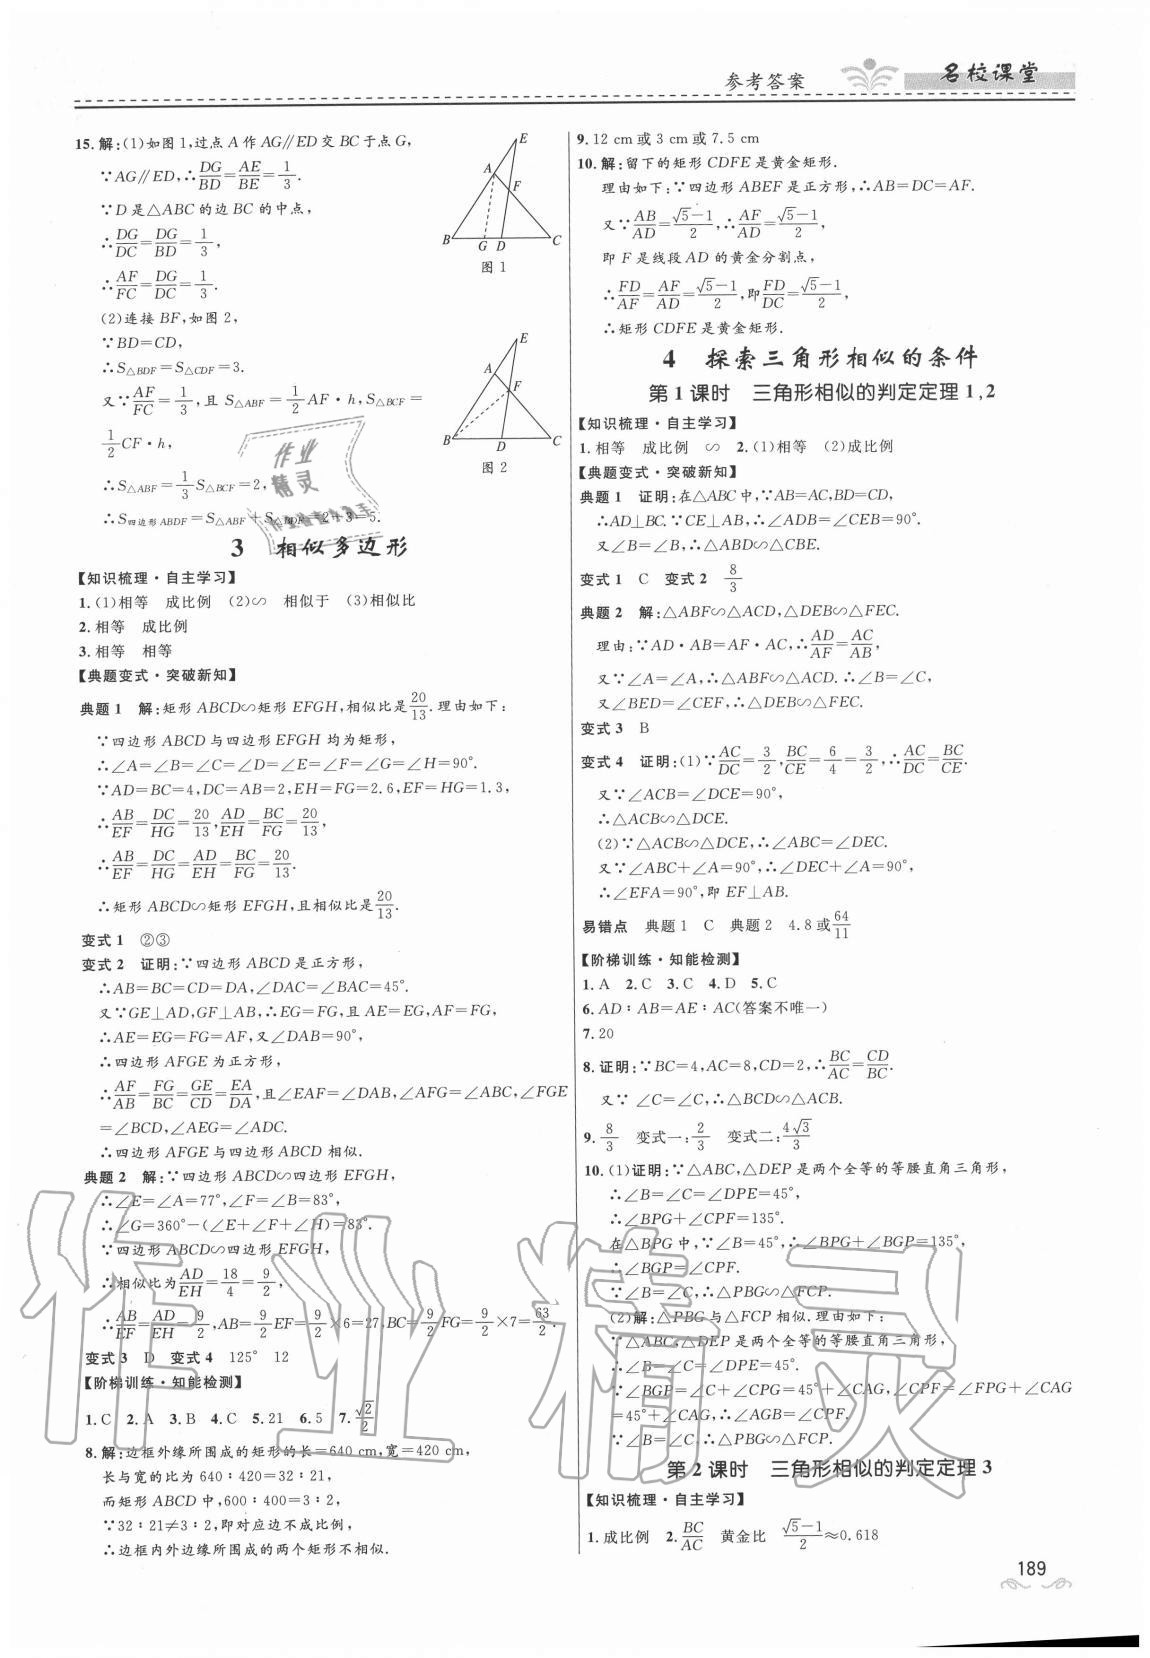 参考答案
名校课堂
15.解:(1)如图1,过点A作AG∥ED交BC于点G,
∵AG∥ED,∴DG/BD=AE/BE=1/3.
∵D是△ABC的边BC的中点,
∴DG/DC=DG/BD=1/3,
∴AF/FC=DG/DC=1/3.
(2)连接BF,如图2,
∵BD=CD,
∴S△BDF=S△CDF=3.
又∵AF/FC=1/3,且S△ABF=1/2AF·h,S△BCF=
1/2CF·h,
∴S△ABF=1/3S△BCF=2,
∴S四边形ABDF=S△ABF+S△BDF=2+3=5.
E
A
F
B
G
D
C
图1
E
A
F
B
D
C
图2
3 相似多边形
【知识梳理·自主学习】
1.(1)相等 成比例 (2)∽ 相似于 (3)相似比
2.相等 成比例
3.相等 相等
【典题变式·突破新知】
典题1 解:矩形ABCD∽矩形EFGH,相似比是20/13.理由如下:
∵四边形ABCD与四边形EFGH均为矩形,
∴∠A=∠B=∠C=∠D=∠E=∠F=∠G=∠H=90°.
∵AD=BC=4,DC=AB=2,EH=FG=2.6,EF=HG=1.3,
∴AB/EF=DC/HG=20/13,AD/EH=BC/FG=20/13,
∴AB/EF=DC/HG=AD/EH=BC/FG=20/13.
∴矩形ABCD∽矩形EFGH,且相似比是20/13.
变式1 ②③
变式2 证明:∵四边形ABCD是正方形,
∴AB=BC=CD=DA,∠DAC=∠BAC=45°.
又∵GE⊥AD,GF⊥AB,∴EG=FG,且AE=EG,AF=FG,
∴AE=EG=FG=AF,又∠DAB=90°,
∴四边形AFGE为正方形,
∴AF/AB=FG/BC=GE/CD=EA/DA,且∠EAF=∠DAB,∠AFG=∠ABC,∠FGE
=∠BCD,∠AEG=∠ADC.
∴四边形AFGE与四边形ABCD相似.
典题2 解:∵四边形ABCD∽四边形EFGH,
∴∠E=∠A=77°,∠F=∠B=83°,
∴∠G=360°-(∠E+∠F+∠H)=83°.
∵四边形ABCD∽四边形EFGH,
∴相似比为AD/EH=18/4=9/2,
∴AB/EF=AD/EH=9/2,AB=9/2EF=9/2×6=27,BC=9/2FG=9/2×7=63/2.
变式3 D 变式4 125° 12
【阶梯训练·知能检测】
1.C 2.A 3.B 4.C 5.21 6.5 7.√2/2
8.解:边框外缘所围成的矩形的长=640 cm,宽=420 cm,
长与宽的比为640∶420=32∶21,
而矩形ABCD中,600∶400=3∶2,
∵32∶21≠3∶2,即对应边不成比例,
∴边框内外边缘所围成的两个矩形不相似.
9.12 cm或3 cm或7.5 cm
10.解:留下的矩形CDFE是黄金矩形.
理由如下:∵四边形ABEF是正方形,∴AB=DC=AF.
又∵AB/AD=(√5-1)/2,∴AF/AD=(√5-1)/2,
即F是线段AD的黄金分割点,
∴FD/AF=AF/AD=(√5-1)/2,即FD/DC=(√5-1)/2,
∴矩形CDFE是黄金矩形.
4 探索三角形相似的条件
第1课时 三角形相似的判定定理1,2
【知识梳理·自主学习】
1.相等 成比例 ∽ 2.(1)相等 (2)成比例
【典题变式·突破新知】
典题1 证明:在△ABC中,∵AB=AC,BD=CD,
∴AD⊥BC.∵CE⊥AB,∴∠ADB=∠CEB=90°.
又∠B=∠B,∴△ABD∽△CBE.
变式1 C 变式2 8/3
典题2 解:△ABF∽△ACD,△DEB∽△FEC.
理由:∵AD·AB=AF·AC,∴AD/AF=AC/AB,
又∵∠A=∠A,∴△ABF∽△ACD.∴∠B=∠C,
又∠BED=∠CEF,∴△DEB∽△FEC.
变式3 B
变式4 证明:(1)∵AC/DC=3/2,BC/CE=6/4=3/2,∴AC/DC=BC/CE.
又∵∠ACB=∠DCE=90°,
∴△ACB∽△DCE.
(2)∵△ACB∽△DCE,∴∠ABC=∠DEC.
又∵∠ABC+∠A=90°,∴∠DEC+∠A=90°,
∴∠EFA=90°,即EF⊥AB.
易错点 典题1 C 典题2 4.8或64/11
【阶梯训练·知能检测】
1.A 2.C 3.C 4.D 5.C
6.AD∶AB=AE∶AC(答案不唯一)
7.20
8.证明:∵BC=4,AC=8,CD=2,∴BC/AC=CD/BC.
又∵∠C=∠C,∴△BCD∽△ACB.
9.8/3 变式一:2/3 变式二:4√3/3
10.(1)证明:∵△ABC,△DEP是两个全等的等腰直角三角形,
∴∠B=∠C=∠DPE=45°,
∴∠BPG+∠CPF=135°.
在△BPG中,∵∠B=45°,∴∠BPG+∠BGP=135°,
∴∠BGP=∠CPF.
∵∠B=∠C,∴△PBG∽△FCP.
(2)解:△PBG与△FCP相似.理由如下:
∵△ABC,△DEP是两个全等的等腰直角三角形,
∴∠B=∠C=∠DPE=45°.
∵∠BGP=∠C+∠CPG=45°+∠CAG,∠CPF=∠FPG+∠CAG
=45°+∠CAG,∴∠AGB=∠CPF.
∵∠B=∠C,∴△PBG∽△FCP.
第2课时 三角形相似的判定定理3
【知识梳理·自主学习】
1.成比例 2.BC/AC 黄金比 (√5-1)/2≈0.618
189
作业精灵
作业
精灵